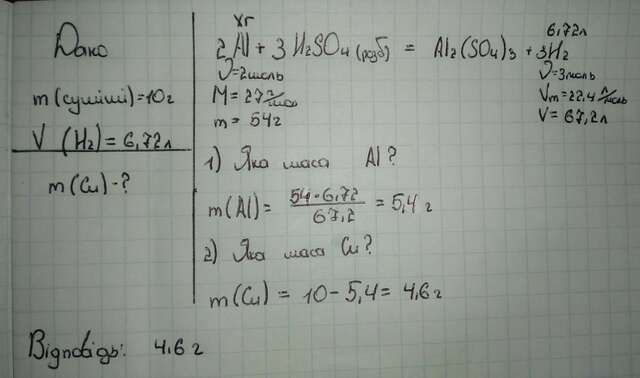 Дано
m(суміші)=10г
V (H₂)=6,72л
m(Cu)-?
xг
6,72л
2Al + 3H₂SO₄ (розб) = Al₂(SO₄)₃ + 3H₂
ν=2моль
M=27 г/моль
m = 54г
ν=3моль
Vm=22,4 л/моль
V=67,2л
1) Яка маса Al?
m(Al)= 54·6,72 / 67,2 = 5,4 г
2) Яка маса Cu?
m(Cu) = 10-5,4= 4,6г
Відповідь: 4.6 г